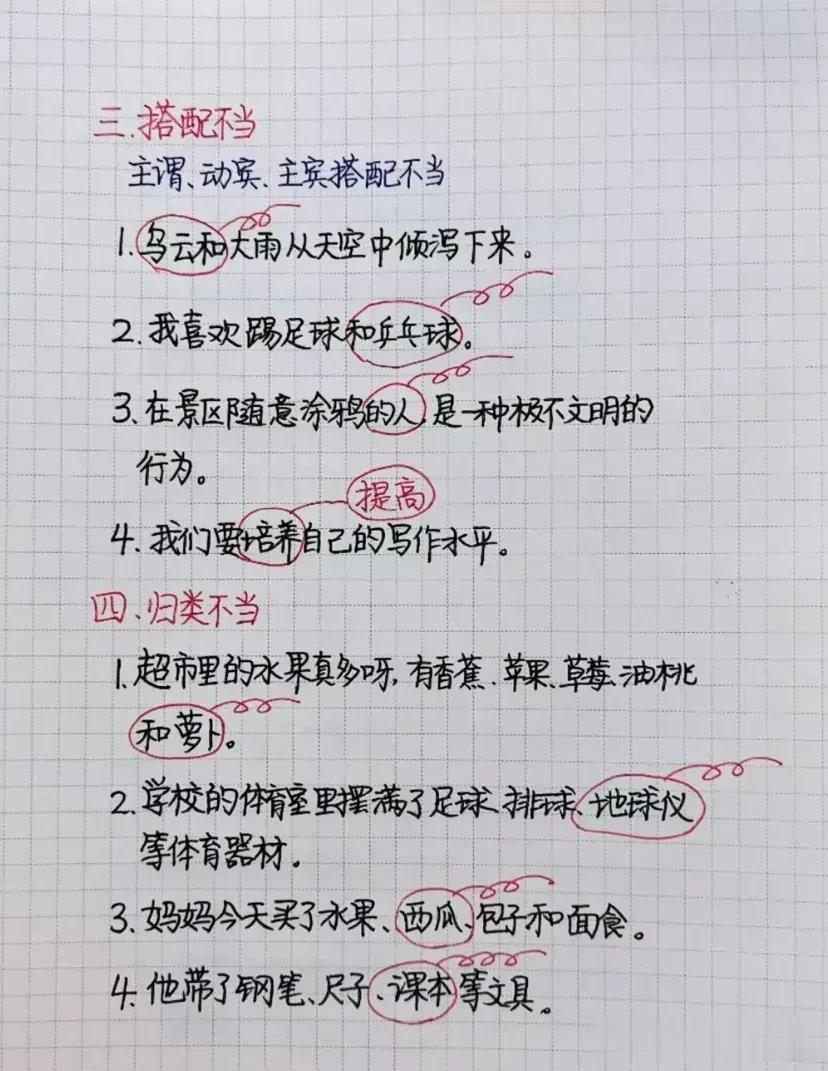 三.搭配不当
主谓、动宾、主宾搭配不当
1.乌云和大雨从天空中倾泻下来。
2.我喜欢踢足球和乒乓球。
3.在景区随意涂鸦的人,是一种极不文明的
行为。
提高
4.我们要培养自己的写作水平。
四.归类不当
1.超市里的水果真多呀,有香蕉、苹果、草莓、油桃
和萝卜。
2.学校的体育室里摆满了足球、排球、地球仪
等体育器材。
3.妈妈今天买了水果、西瓜、包子和面食。
4.他带了钢笔、尺子、课本等文具。